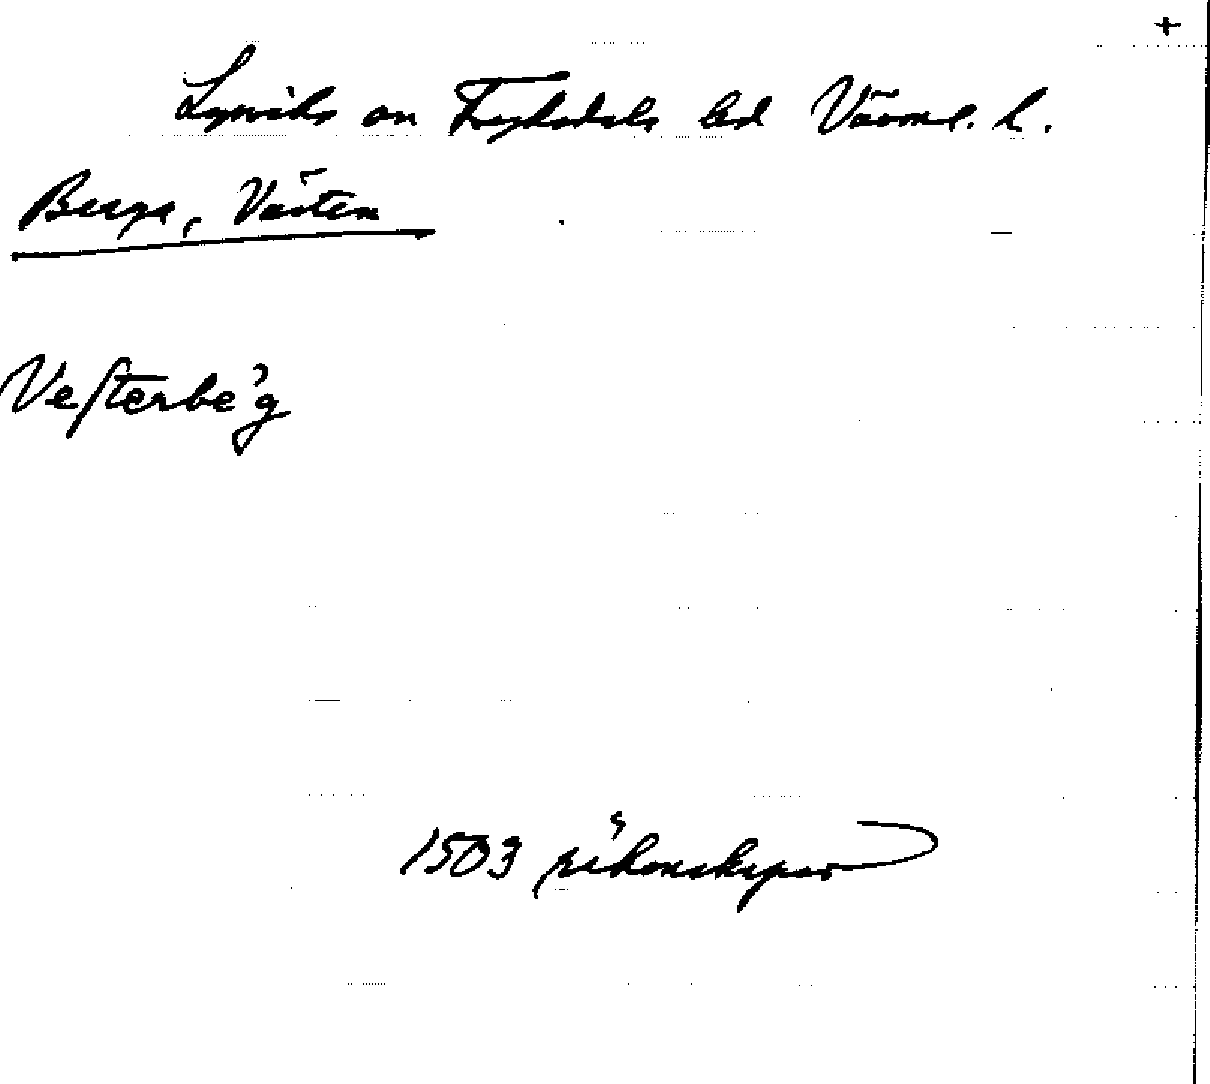 +
Lysviks sn Fryksdals hd Värml. l.
Berga, Västen
Veſterbe'g
1503 räkenskaper